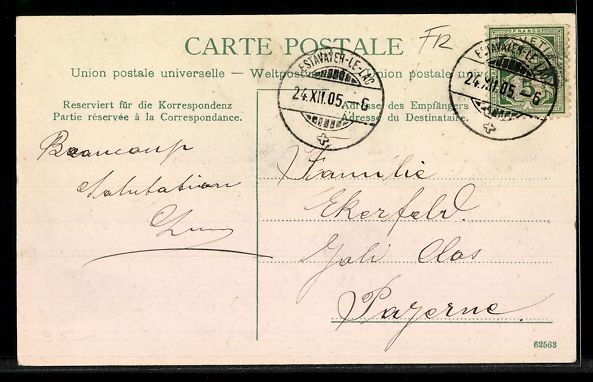 CARTE POSTALE
FR
Union postale universelle – Weltpost Union postale univ
ESTAVAYER-LE-LAC
24.XII.05.-6
ESTAVAYER-LE-LAC
24.XII.05.-6
FRANCO
Reserviert für die Korrespondenz
Partie réservée à la Correspondance.
Adresse des Empfängers
Adresse du Destinataire.
Beaucoup
Salutation
Familie
Ekerfeld.
Joli Clos
Payerne
62563